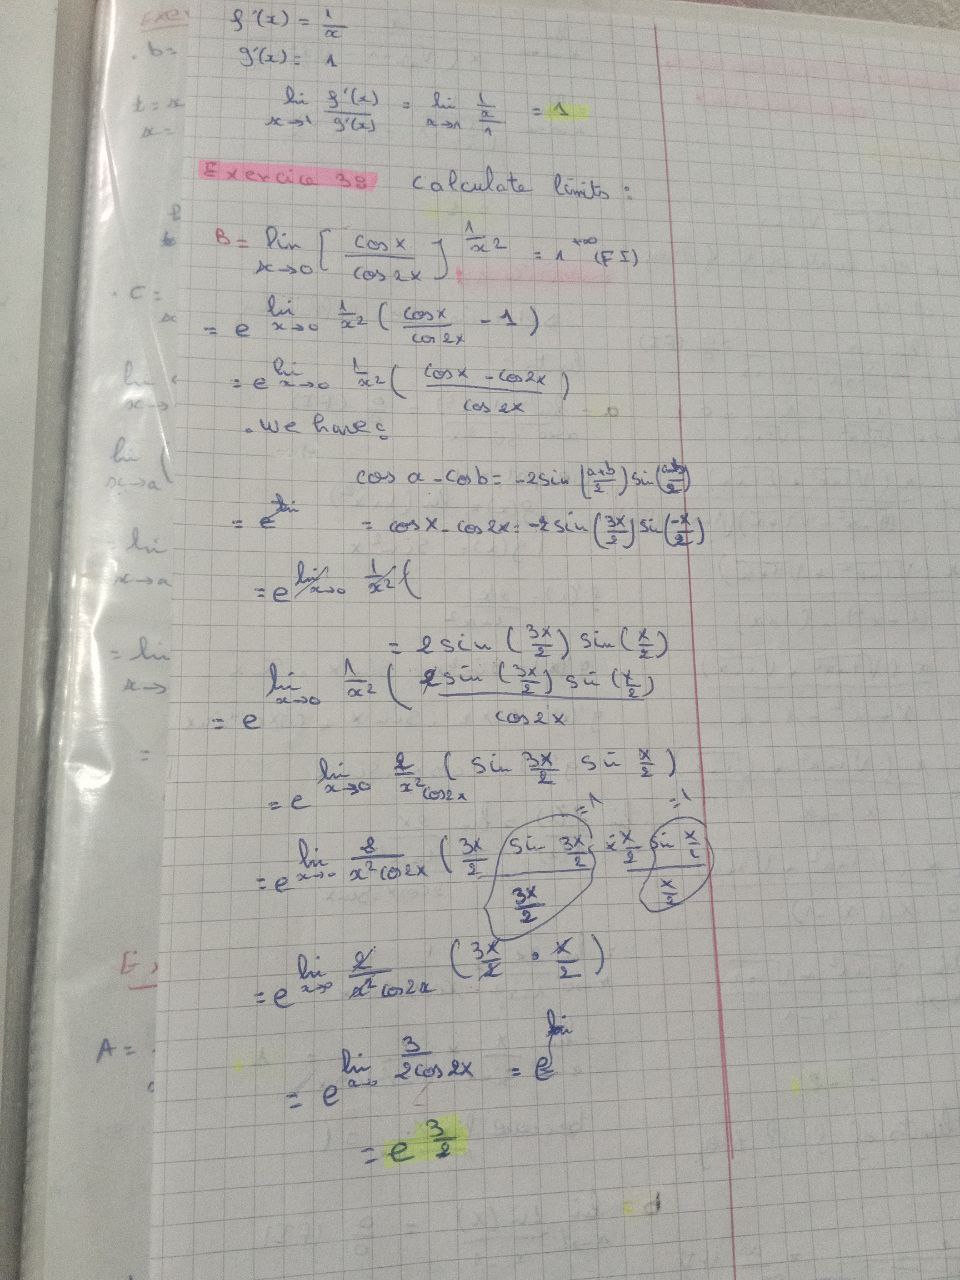 f'(x) = 1/x
g'(x) = 1
lim x→1 f'(x)/g'(x) = lim x→1 (1/x)/1 = 1
Exercice 38 Calculate limits :
B = lim x→0 [ cos x / cos 2x ]^(1/x²) = 1^(+∞) (FI)
= e^(lim x→0 1/x² ( cos x / cos 2x - 1 ))
= e^(lim x→0 1/x² ( (cos x - cos 2x) / cos 2x ))
. We have :
cos a - cos b = -2 sin ( (a+b)/2 ) sin
= e = cos x - cos 2x = -2 sin ( 3x/2 ) sin ( -x/2 )
= e^(lim x→0 1/x² (
= 2 sin ( 3x/2 ) sin ( x/2 )
= e^(lim x→0 1/x² ( 2 sin ( 3x/2 ) sin ( x/2 ) / cos 2x
= e^(lim x→0 2/(x² cos 2x) ( sin 3x/2 sin x/2 ))
=1 =1
= e^(lim x→0 2/(x² cos 2x) ( 3x/2 (sin 3x/2)/(3x/2) x/2 (sin x/2)/(x/2)
= e^(lim x→0 2/(x² cos 2x) ( 3x/2 . x/2 ))
= e^(lim x→ 3/(2 cos 2x)) = e^(lim
= e^(3/2)
b=
t = x
x =
C =
lim
x→
lim (
x→a
lim
x→a
= lim
x→
=
E
A =